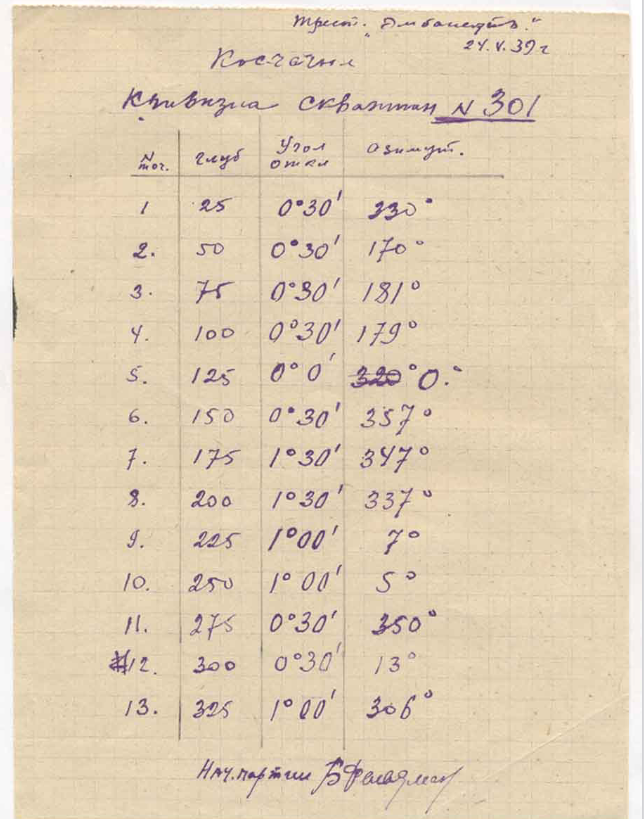 Трест. "Эмбанефть."
24.V.39г
Косчагыл
Кривизна скважин N 301
N точ. глуб Угол откл азимут.
1 25 0°30' 330°
2. 50 0°30' 170°
3. 75 0°30' 181°
4. 100 0°30' 179°
5. 125 0°0' 320° 0.°
6. 150 0°30' 357°
7. 175 1°30' 347°
8. 200 1°30' 337°
9. 225 1°00' 7°
10. 250 1°00' 5°
11. 275 0°30' 350°
12. 300 0°30' 13°
13. 325 1°00' 306°
Нач. партии